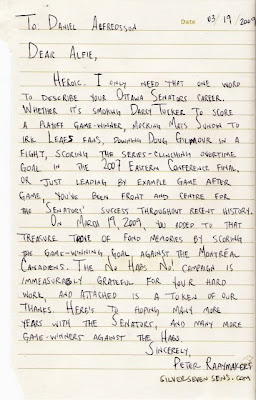 To: Daniel Alfredsson
Date 03/19/2009
Dear Alfie,
Heroic. I only need that one word
to describe your Ottawa Senators career.
Whether it's smoking Darcy Tucker to score
a playoff game-winner, mocking Mats Sundin to
irk Leafs fans, downing Doug Gilmour in a
fight, scoring the series-clinching overtime
goal in the 2007 Eastern Conference Final,
or just leading by example game after
game, you've been front and centre for
the Senators' success throughout recent history.
On March 19, 2009, you added to that
treasure trove of fond memories by scoring
the game-winning goal against the Montreal
Canadiens. The 'No Habs No' campaign is
immeasurably grateful for your hard
work, and attached is a token of our
thanks. Here's to hoping many more
years with the Senators, and many more
game-winners against the Habs.
Sincerely,
Peter Raaymakers
silversevensens.com